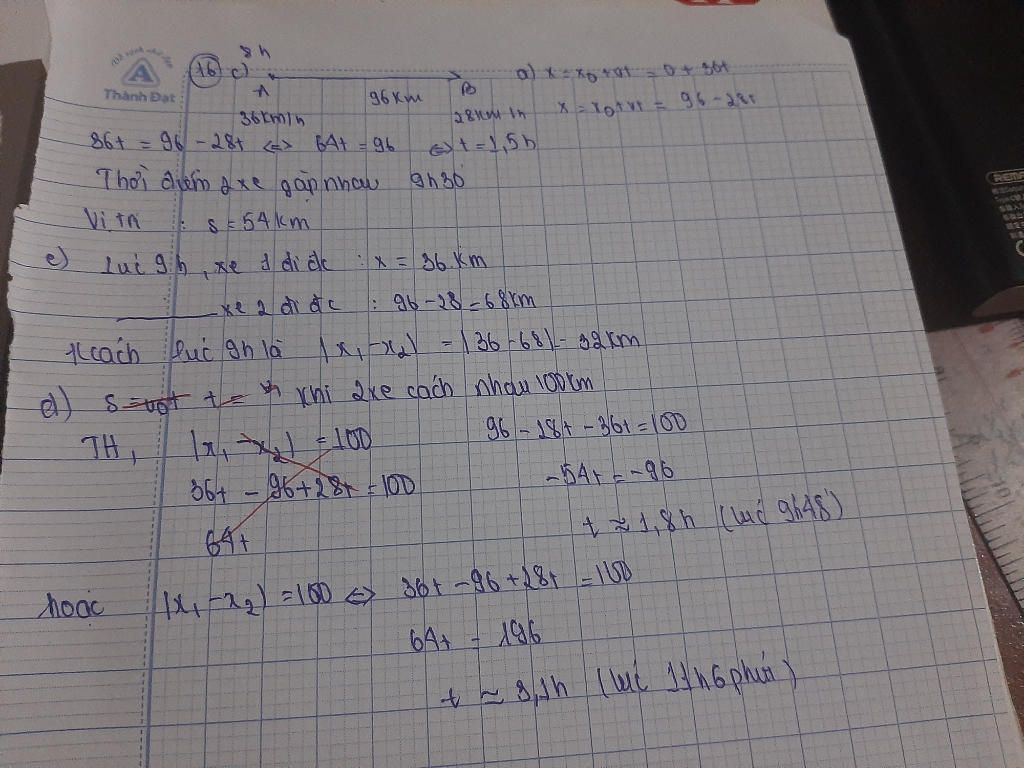 Thành Đạt
8h
16 c)
a) x = x0 + vt = 0 + 36t
A 96km B
x = x0 + vt = 96 - 28t
36km/h 28km/h
36t = 96 - 28t <=> 64t = 96 <=> t = 1,5h
Thời điểm 2 xe gặp nhau 9h30'
Vị trí : s = 54km
c) Lúc 9h, xe 1 đi đc : x = 36 km
xe 2 đi đc : 96 - 28 = 68km
Kcách lúc 9h là |x1 - x2| = |36 - 68| = 32km
d) s = t = khi 2xe cách nhau 100km
TH1 |x1 - x2| = 100 96 - 28t - 36t = 100
36t - 96 + 28t = 100 -54t = -96
64t t ≈ 1,8h (lúc 9h48')
hoặc |x1 - x2| = 100 <=> 36t - 96 + 28t = 100
64t = 196
t ≈ 3,1h (lúc 11h6phút)